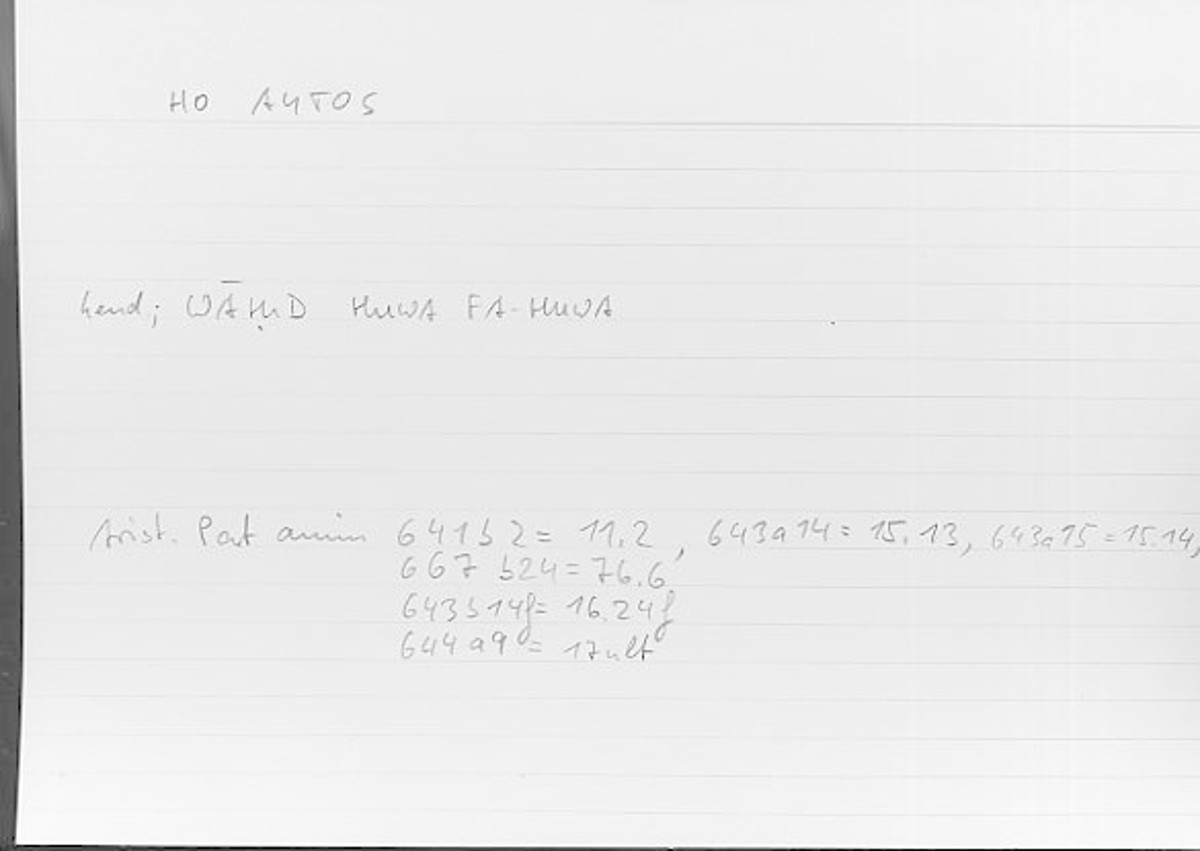 HO AYTOS
hend; WĀḤID HUWA FA-HUWA
Arist. Part anim 641b2 = 11.2, 643a14 = 15.13, 643a15 = 15.14,
667 b24 = 76.6
643b14f = 16.24f
644a9 = 17ult